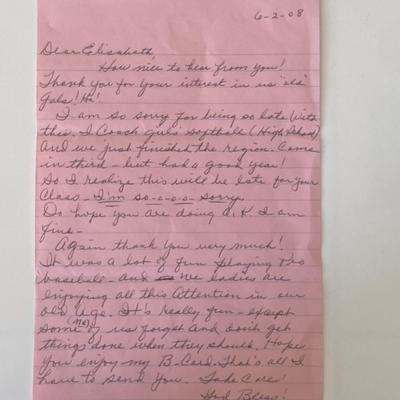 6-2-08
Dear Elisabeth,
How nice to hear from you!
Thank you for your interest in us "old"
Gals! Ha!
I am so sorry for being so late with
this. I Coach Girls Softball (High School)
And we just finished the region. Came
in third - but had a good year!
So I realize this will be late for your
Class - I'm so-o-o-o sorry.
Do hope you are doing O.K. I am
fine -
Again thank you very much!
It was a lot of fun playing Pro
baseball - and we ladies are
enjoying all this Attention in our
old Age. It's really fun - except
some of us (me) forget And don't get
things done when they should. Hope
you enjoy my B-Card. That's all I
have to send you. Take Care!
God Bless!